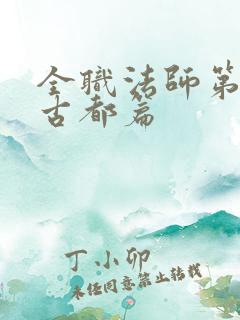 全职法师第
古都篇
丁小卯
未经同意禁止转载